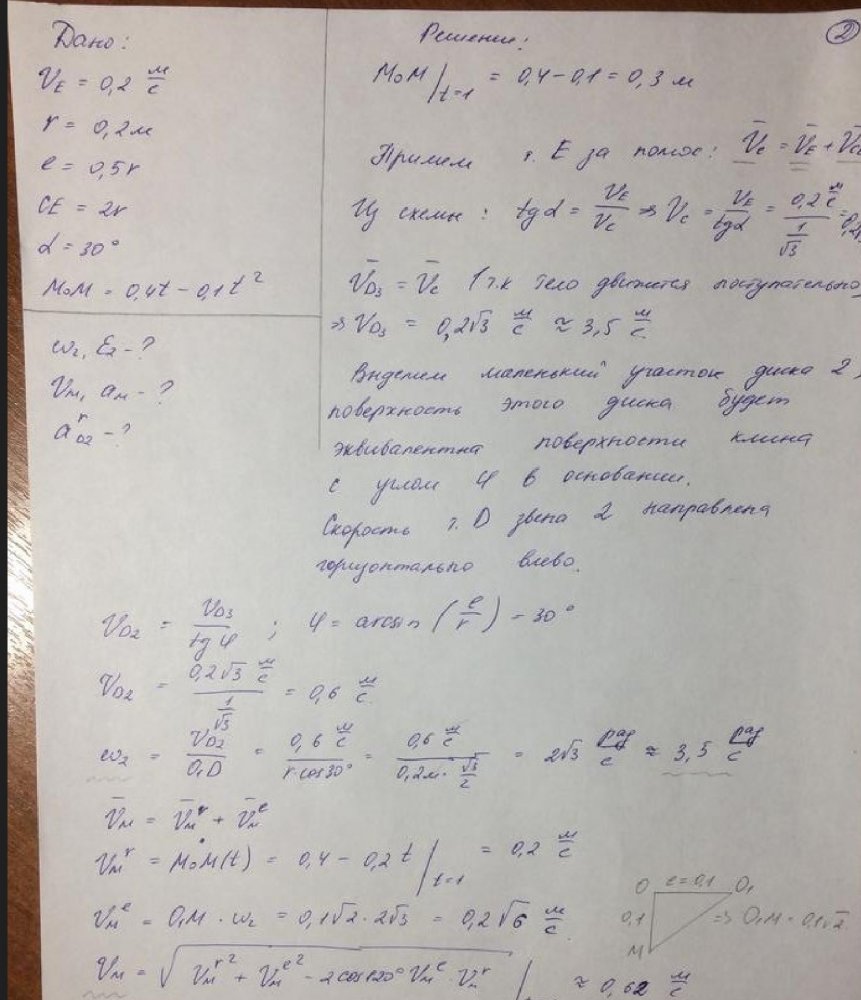 2
Дано:
V_E = 0,2 м/с
r = 0,2 м
e = 0,5r
CE = 2r
α = 30°
M₀M = 0,4t – 0,1t²
ω₂, ε₂ – ?
V_M, a_M – ?
a^r_D2 – ?
Решение:
M₀M|t=1 = 0,4 – 0,1 = 0,3 м
Примем т. E за полюс: V̄_C = V̄_E + V̄_CE
Из схемы: tgα = V_E/V_C ⇒ V_C = V_E/tgα = 0,2 м/с / (1/√3) =
V̄_D3 = V̄_C (т.к тело движется поступательно
⇒ V_D3 = 0,2√3 м/с ≈ 3,5 м/с
Выделем маленький участок диска 2,
поверхность этого диска будет
эквивалентна поверхности клина
с углом φ в основании.
Скорость т. D звена 2 направлена
горизонтально влево.
V_D2 = V_D3/tgφ ; φ = arcsin(e/r) = 30°
V_D2 = 0,2√3 м/с / (1/√3) = 0,6 м/с
ω₂ = V_D2/O₁D = 0,6 м/с / r cos30° = 0,6 м/с / (0,2м · √3/2) = 2√3 рад/с ≈ 3,5 рад/с
V̄_M = V̄_M^r + V̄_M^e
V_M^r = M₀Ṁ(t) = 0,4 – 0,2t|t=1 = 0,2 м/с
V_M^e = O₁M · ω₂ = 0,1√2 · 2√3 = 0,2√6 м/с
O e=0,1 O₁
0,1 ⇒ O₁M = 0,1√2
M
V_M = √(V_M^r² + V_M^e² – 2cos120° V_M^e · V_M^r) | ≈ 0,62 м/с